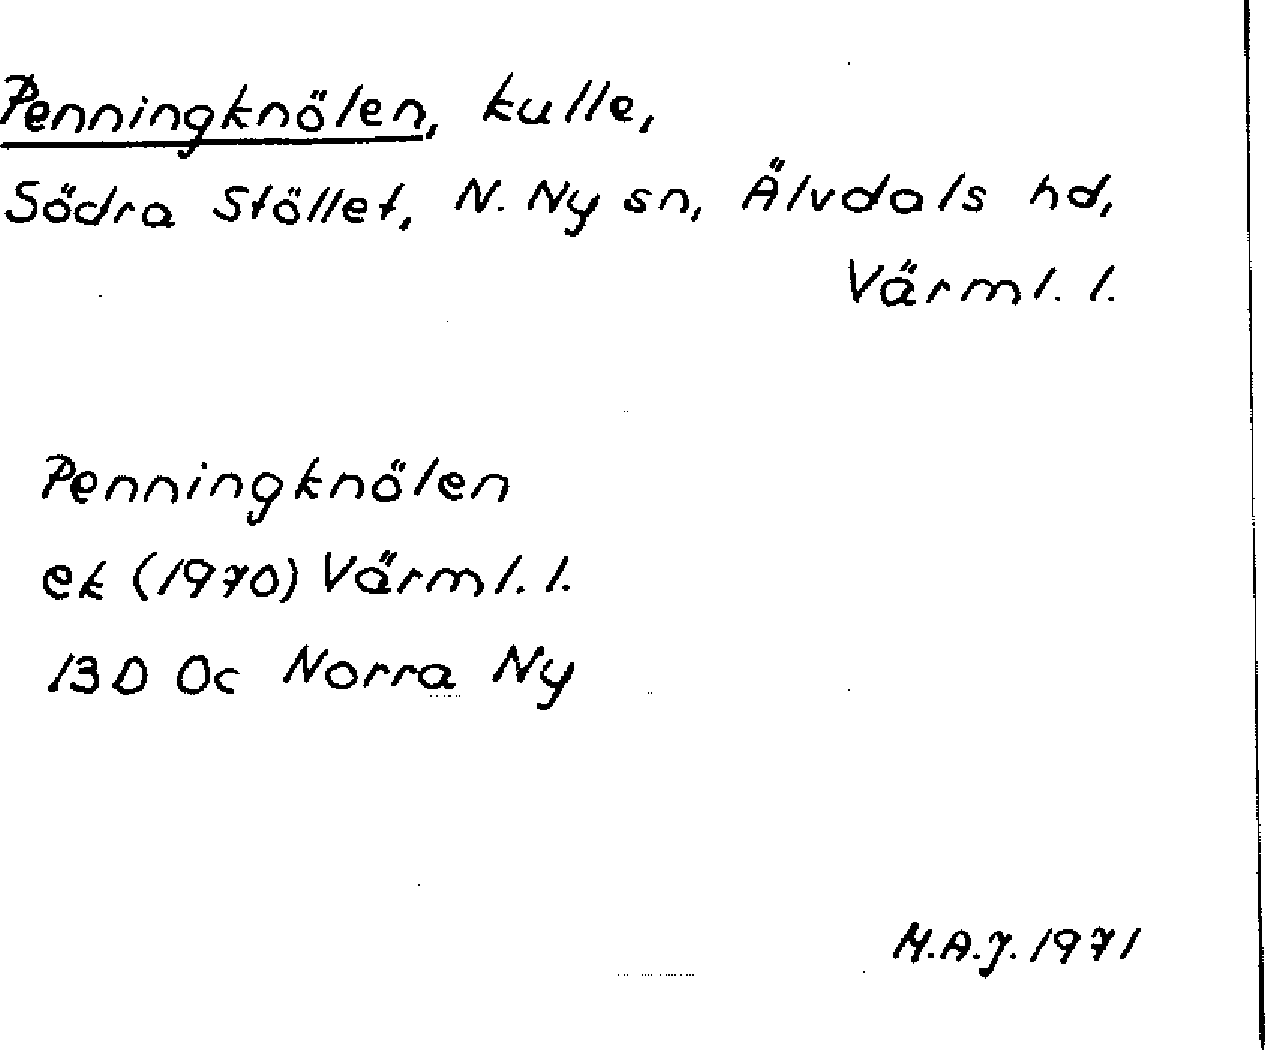 Penningknölen, kulle,
Södra Stöllet, N. Ny sn, Älvdals hd,
Värml. l.
Penningknölen
ek (1970) Värml. l.
13D 0c Norra Ny
M.A.J. 1971